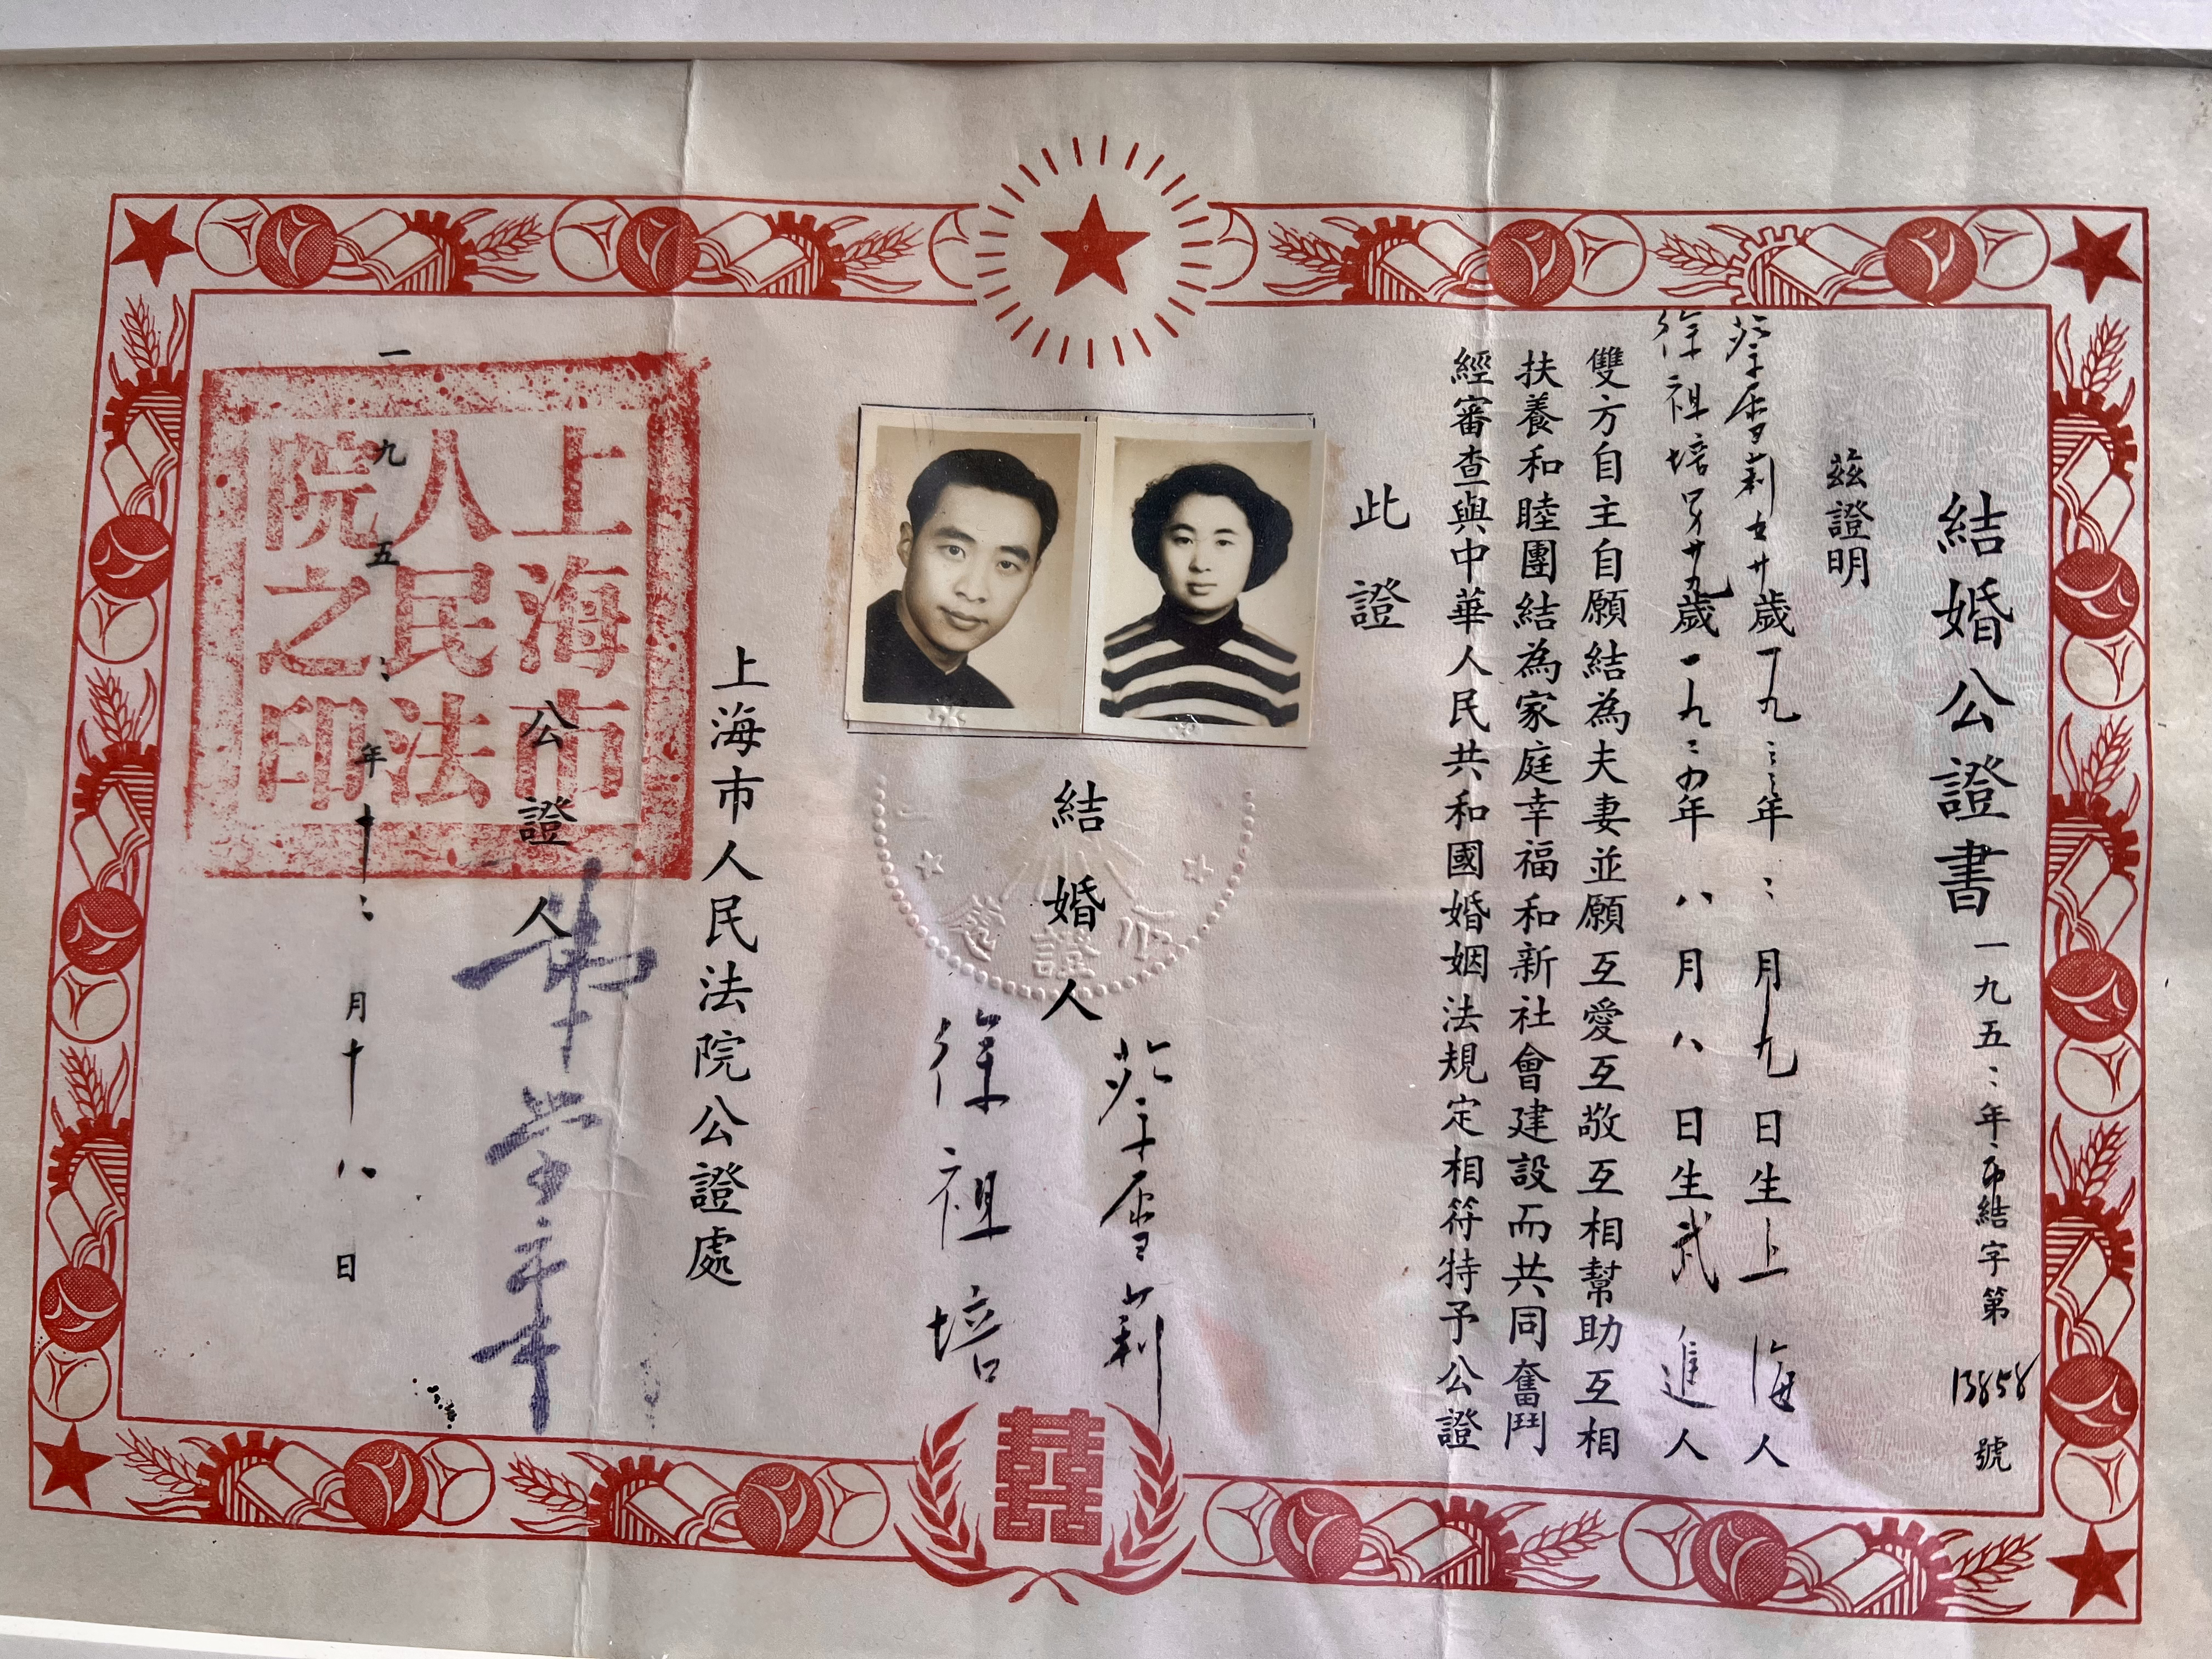 結婚公證書
一九五二年 市結字第13858號
茲證明
蔡雪莉 女廿歲一九三三年二月九日生上海人
徐祖培 男廿九歲一九二四年八月八日生武進人
雙方自主自願結為夫妻並願互愛互敬互相幫助互相
扶養和睦團結為家庭幸福和新社會建設而共同奮鬥
經審查與中華人民共和國婚姻法規定相符特予公證
此證
結婚人
蔡雪莉
徐祖培
公證處
上海市人民法院公證處
公證人
一九五二年十二月十八日
上海市
人民法
院之印
囍